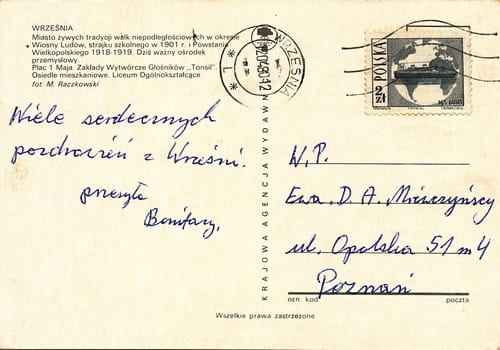 WRZEŚNIA
Miasto żywych tradycji walk niepodległościowych w okresie
Wiosny Ludów, strajku szkolnego w 1901 r. i Powstania
Wielkopolskiego 1918-1919. Dziś ważny ośrodek
przemysłowy.
Plac 1 Maja. Zakłady Wytwórcze Głośników „Tonsil".
Osiedle mieszkaniowe. Liceum Ogólnokształcące
fot. M. Raczkowski
WRZEŚNIA
* 1 *
POLSKA
2 zł
Wiele serdecznych
pozdrowień z Wrześni.
przesyła
KRAJOWA AGENCJA WYDAWN
W.P.
Ewa, D. A.
ul. Opolska 51 m 4
Poznań
ozn. kod
poczta
Wszelkie prawa zastrzeżone